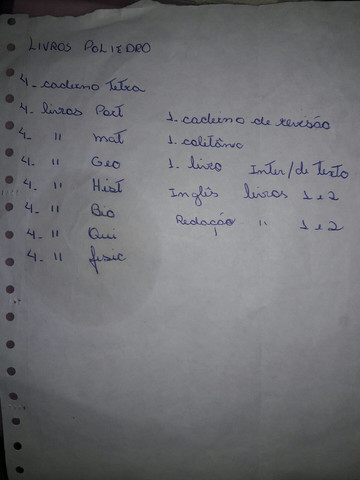 LIVROS POLIEDRO
4- caderno tetra
4- livros Port
4- " mat
4- " Geo
4- " Hist
4- " Bio
4- " Qui
4- " fisic
1. caderno de revisão
1. colitânio
1. livro Inter/de texto
Inglês livros 1 e 2
Redação " 1 e 2